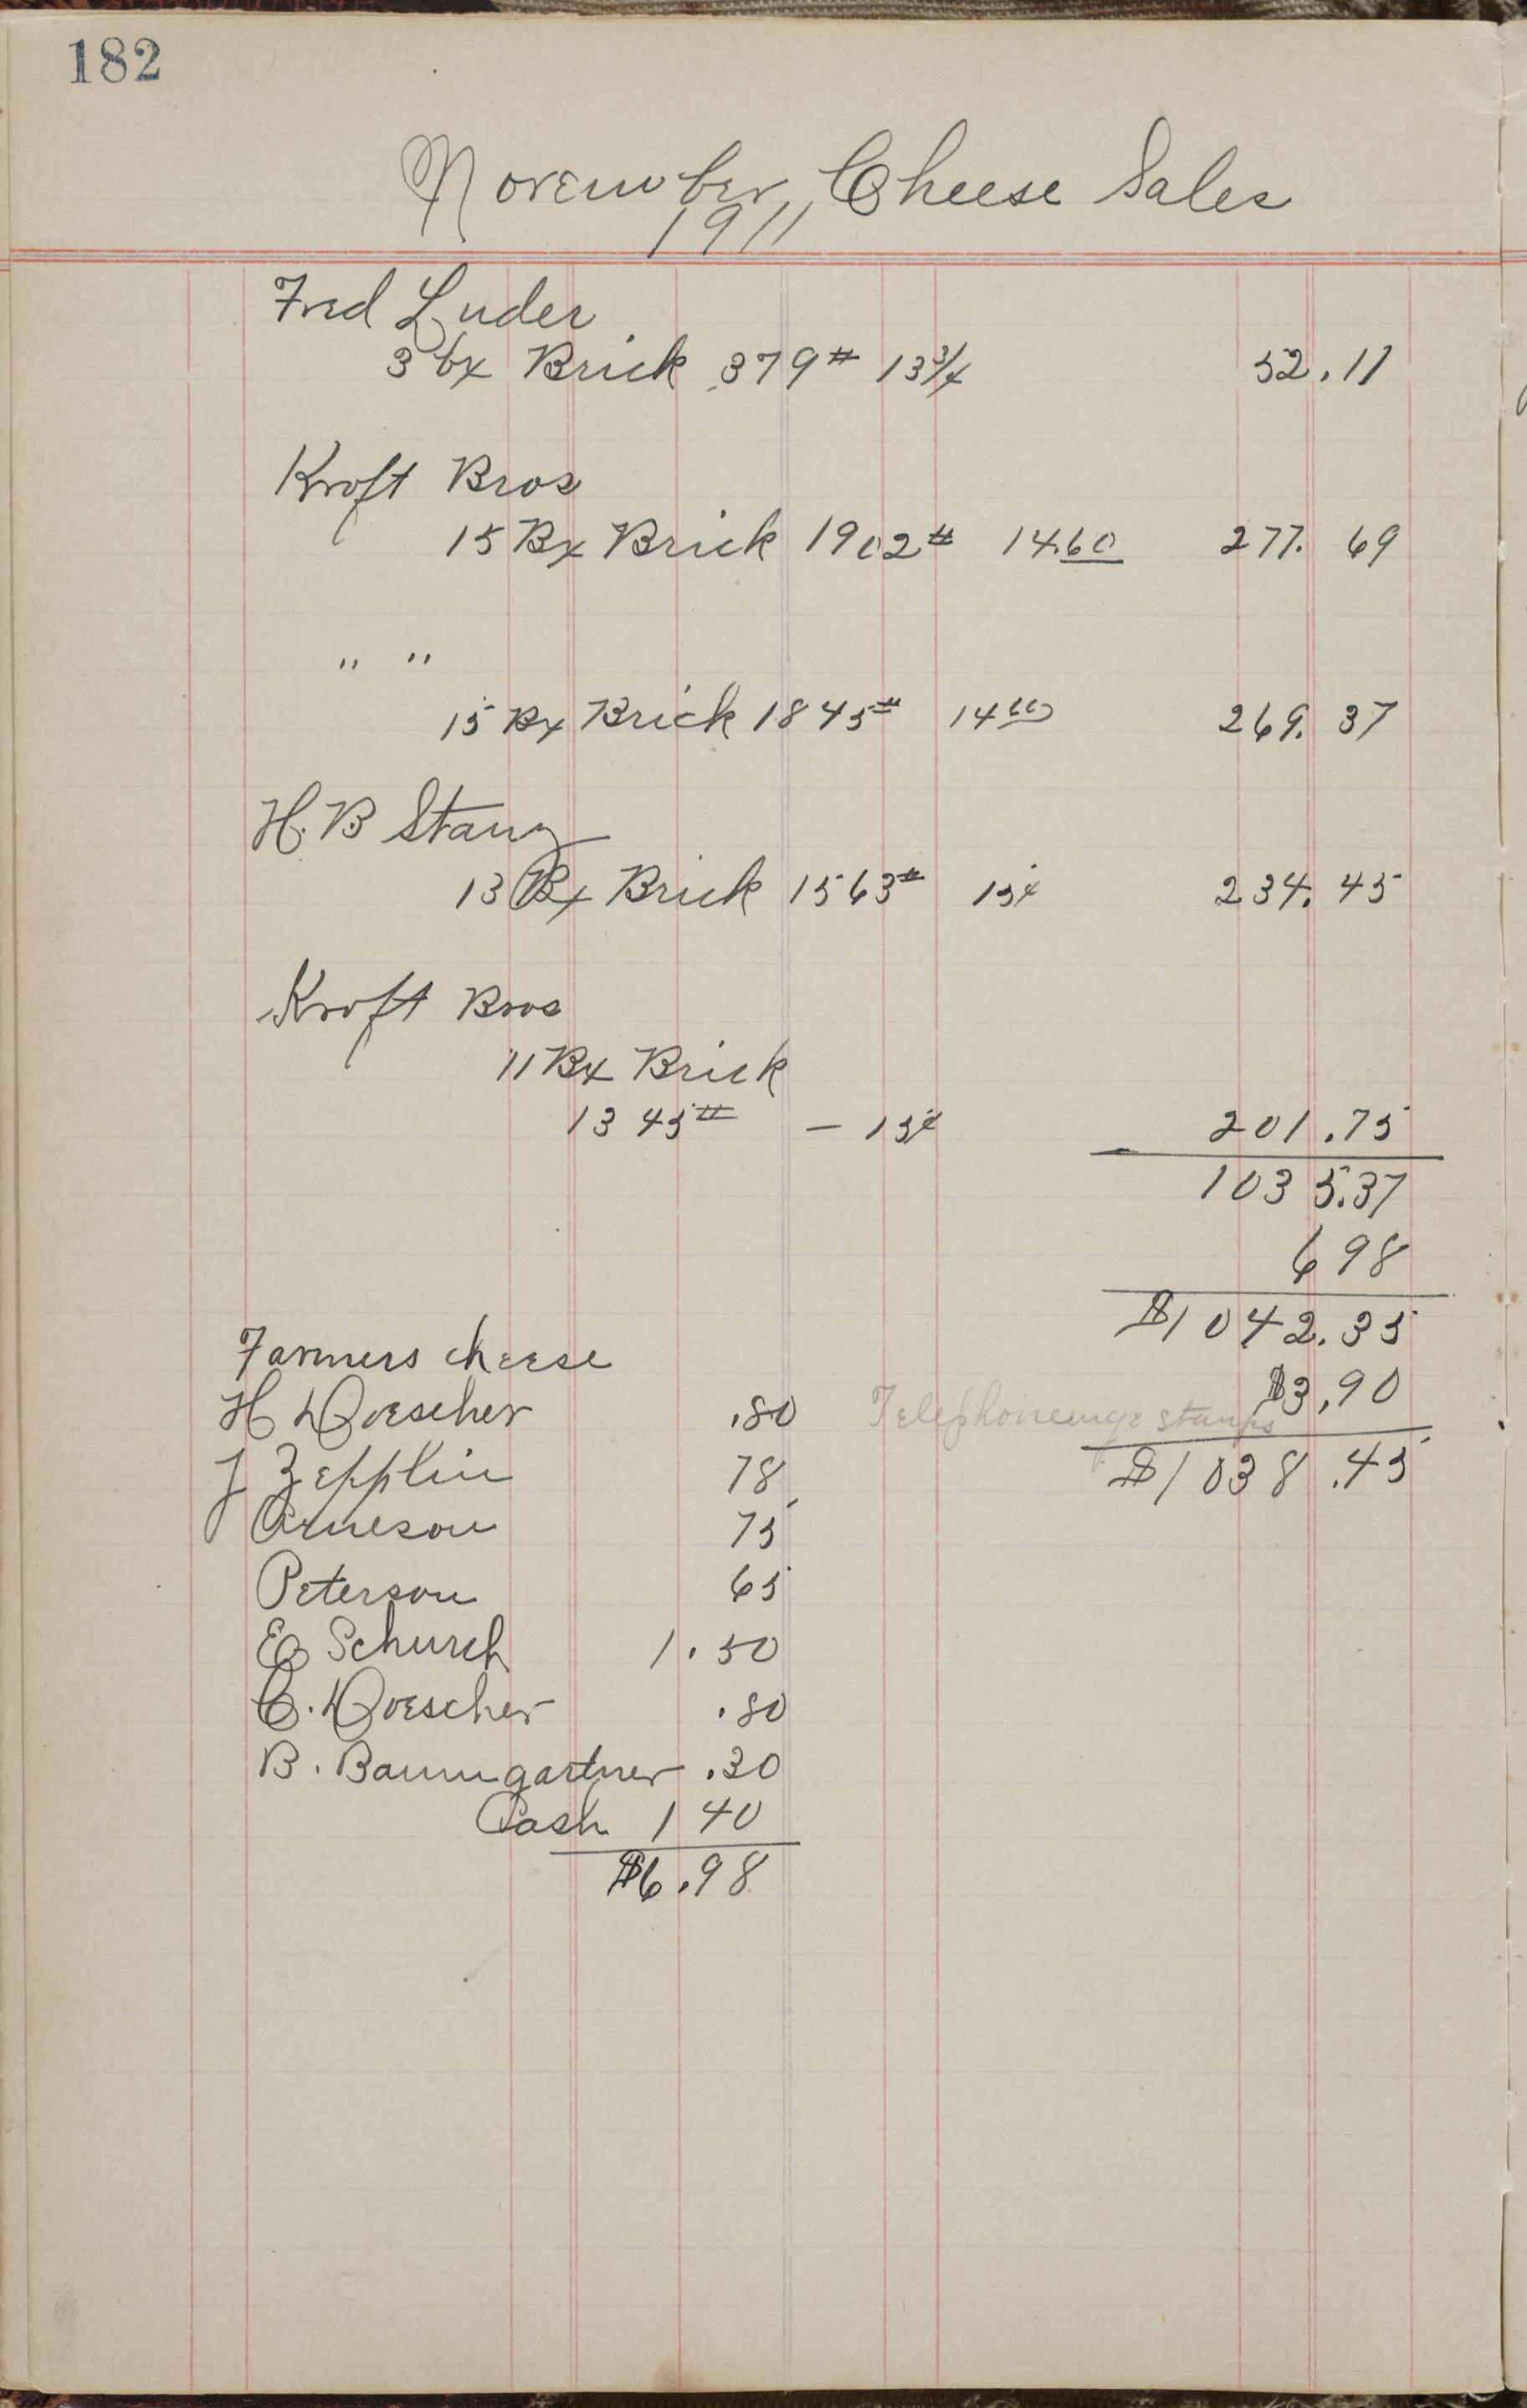 182
November Cheese Sales
1911
Fred Luder
3 bx Brick 379# 13 3/4 52.11
Kroft Bros
15 Bx Brick 1902# 14.60 277.69
" "
15 Bx Brick 1845# 14 60 269.37
H. B Stanz
13 Bx Brick 1563# 15¢ 234.45
Kroft Bros
11 Bx Brick
1345# – 15¢ 201.75
1035.37
698
$1042.35
Farmers cheese
$3.90
H Doescher .80 Telephone stamps
J Zepplin 78 $1038.45
Arneson 75
Peterson 65
E Schurch 1.50
C. Doescher .80
B. Baumgartner .30
Cash 1 40
$6.98